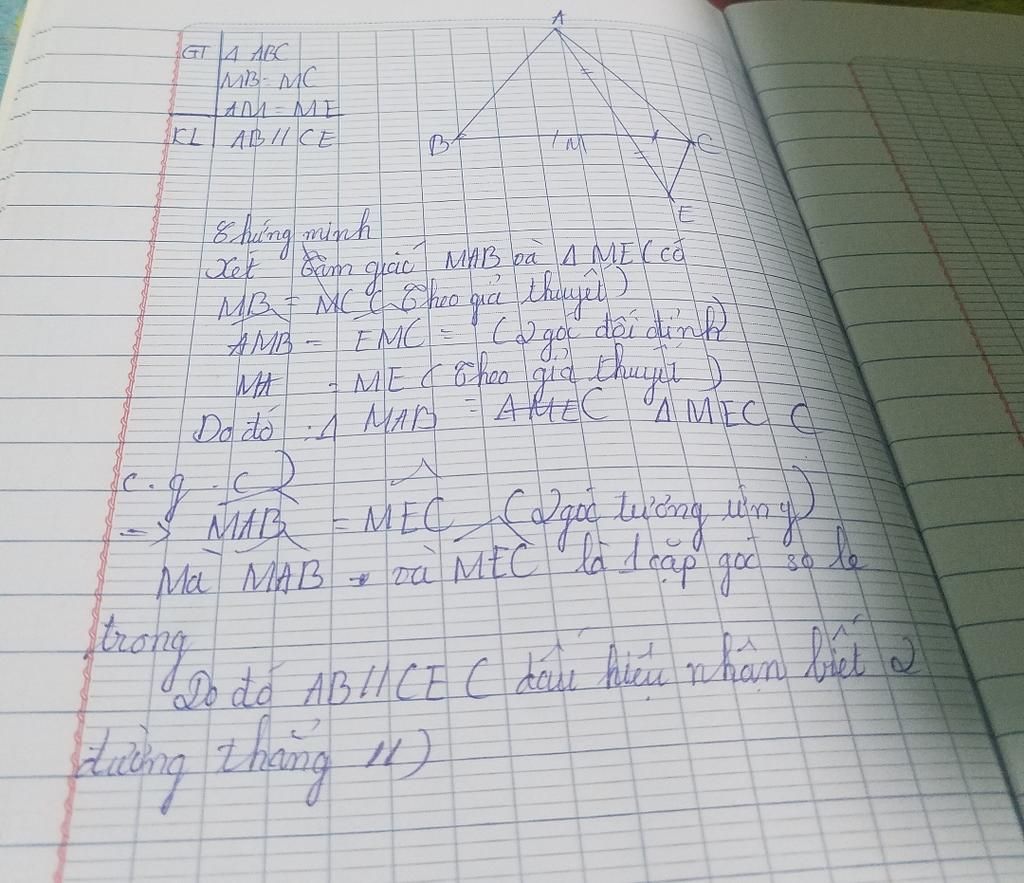 A
GT Δ ABC
MB = MC
AM = ME
KL AB // CE
B M C
E
Chứng minh
Xét tam giác MAB và Δ MEC có
MB = MC (Theo giả thuyết)
AMB = EMC = (2 góc đối đỉnh)
MA = ME (Theo giả thuyết)
Do đó : Δ MAB = ΔMEC ΔMEC (
c.g.c)
=> MAB = MEC (2 góc tương ứng)
Mà MAB và MEC là 1 cặp góc so le
trong
Do đó AB // CE ( dấu hiệu nhận biết 2
đường thẳng //)